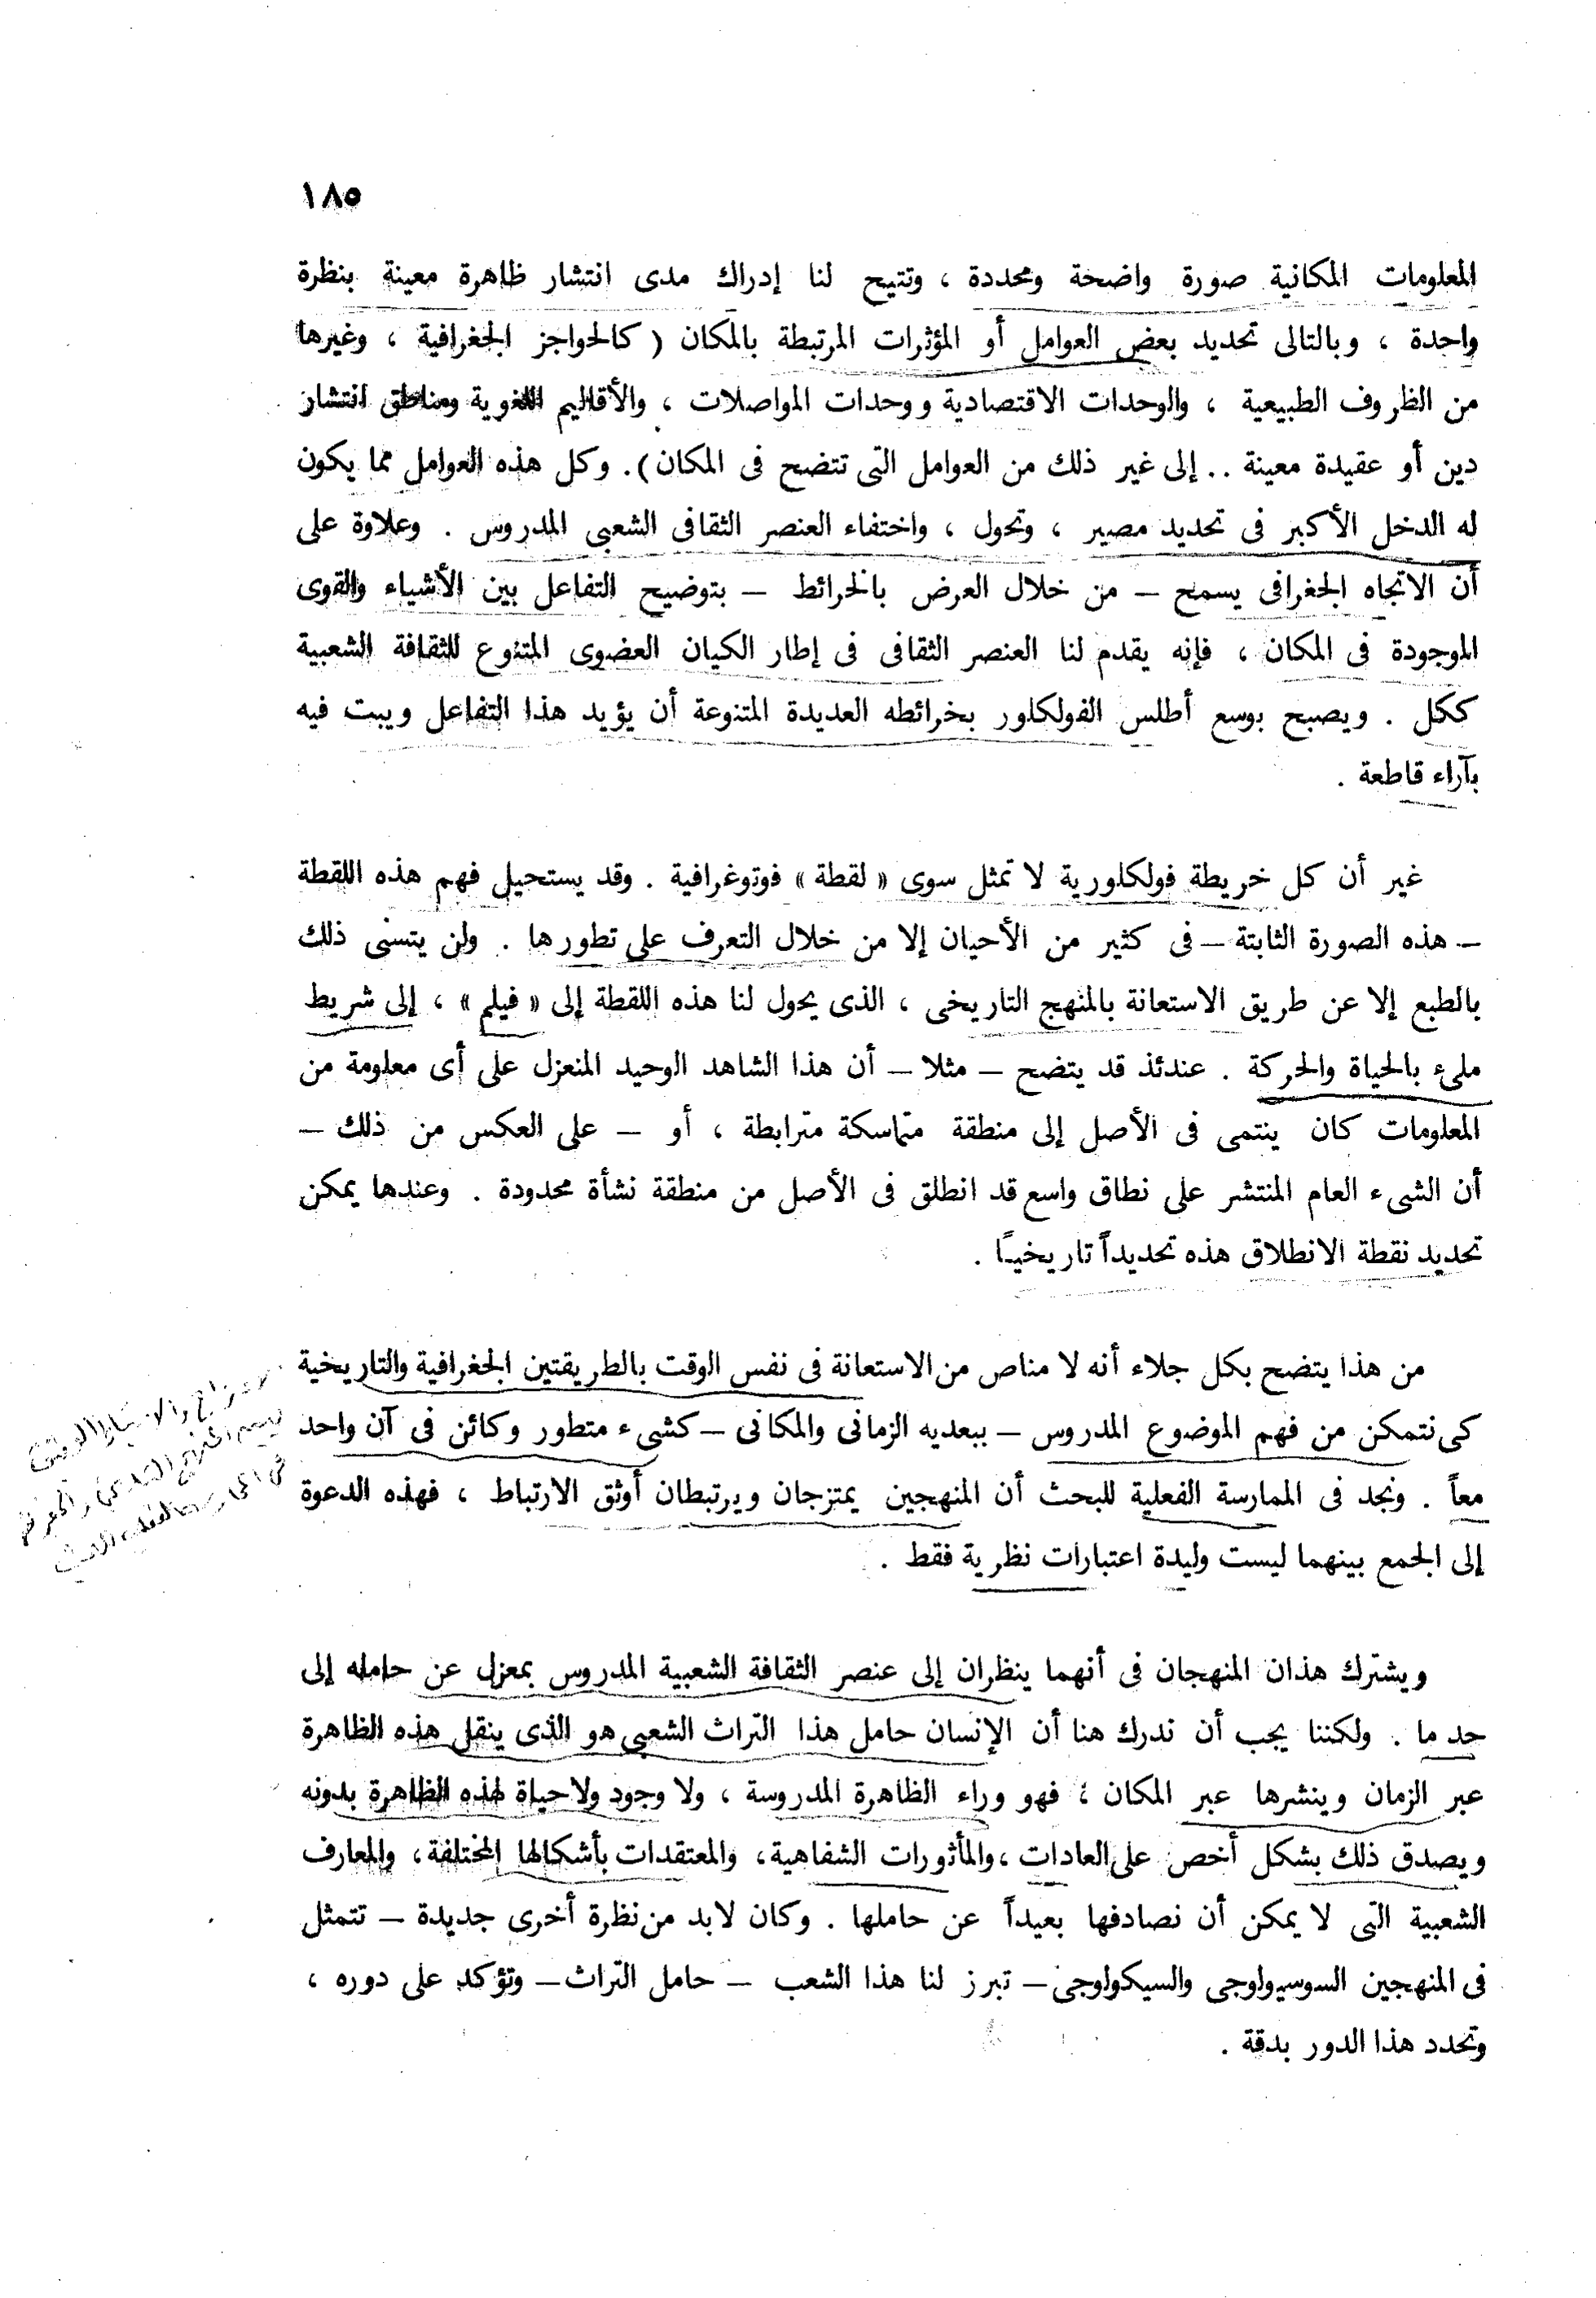 ١٨٥
المعلومات المكانية صورة واضحة ومحددة ، وتتيح لنا إدراك مدى انتشار ظاهرة معينة بنظرة
واحدة ، وبالتالى تحديد بعض العوامل أو المؤثرات المرتبطة بالمكان ( كالحواجز الجغرافية ، وغيرها
من الظروف الطبيعية ، والوحدات الاقتصادية ووحدات المواصلات ، والأقاليم اللغوية ومناطق انتشار
دين أو عقيدة معينة .. إلى غير ذلك من العوامل التى تتضح فى المكان). وكل هذه العوامل مما يكون
له الدخل الأكبر فى تحديد مصير ، وتحول ، واختفاء العنصر الثقافى الشعبى المدروس . وعلاوة على
أن الاتجاه الجغرافى يسمح – من خلال العرض بالخرائط – بتوضيح التفاعل بين الأشياء والقوى
الموجودة فى المكان ، فإنه يقدم لنا العنصر الثقافى فى إطار الكيان العضوى المتنوع للثقافة الشعبية
ككل . ويصبح بوسع أطلس الفولكلور بخرائطه العديدة المتنوعة أن يؤيد هذا التفاعل ويبت فيه
بآراء قاطعة .
غير أن كل خريطة فولكلورية لا تمثل سوى « لقطة » فوتوغرافية . وقد يستحيل فهم هذه اللقطة
– هذه الصورة الثابتة – فى كثير من الأحيان إلا من خلال التعرف على تطورها . ولن يتسنى ذلك
بالطبع إلا عن طريق الاستعانة بالمنهج التاريخى ، الذى يحول لنا هذه اللقطة إلى « فيلم » ، إلى شريط
ملىء بالحياة والحركة . عندئذ قد يتضح – مثلا – أن هذا الشاهد الوحيد المنعزل على أى معلومة من
المعلومات كان ينتمى فى الأصل إلى منطقة متماسكة مترابطة ، أو – على العكس من ذلك –
أن الشىء العام المنتشر على نطاق واسع قد انطلق فى الأصل من منطقة نشأة محدودة . وعندها يمكن
تحديد نقطة الانطلاق هذه تحديداً تاريخيـًا .
من هذا يتضح بكل جلاء أنه لا مناص من الاستعانة فى نفس الوقت بالطريقتين الجغرافية والتاريخية
كى نتمكن من فهم الموضوع المدروس – ببعديه الزمانى والمكانى – كشىء متطور وكائن فى آن واحد
معاً . ونجد فى الممارسة الفعلية للبحث أن المنهجين يمتزجان ويرتبطان أوثق الارتباط ، فهذه الدعوة
إلى الجمع بينهما ليست وليدة اعتبارات نظرية فقط .
ويشترك هذان المنهجان فى أنهما ينظران إلى عنصر الثقافة الشعبية المدروس بمعزل عن حامله إلى
حد ما . ولكننا يجب أن ندرك هنا أن الإنسان حامل هذا التراث الشعبى هو الذى ينقل هذه الظاهرة
عبر الزمان وينشرها عبر المكان ؛ فهو وراء الظاهرة المدروسة ، ولا وجود ولا حياة لهذه الظاهرة بدونه
ويصدق ذلك بشكل أخص على العادات ، والمأثورات الشفاهية ، والمعتقدات بأشكالها المختلفة ، والمعارف
الشعبية التى لا يمكن أن نصادفها بعيداً عن حاملها . وكان لابد من نظرة أخرى جديدة – تتمثل
فى المنهجين السوسيولوجى والسيكولوجى – تبرز لنا هذا الشعب – حامل التراث – وتؤكد على دوره ،
وتحدد هذا الدور بدقة .